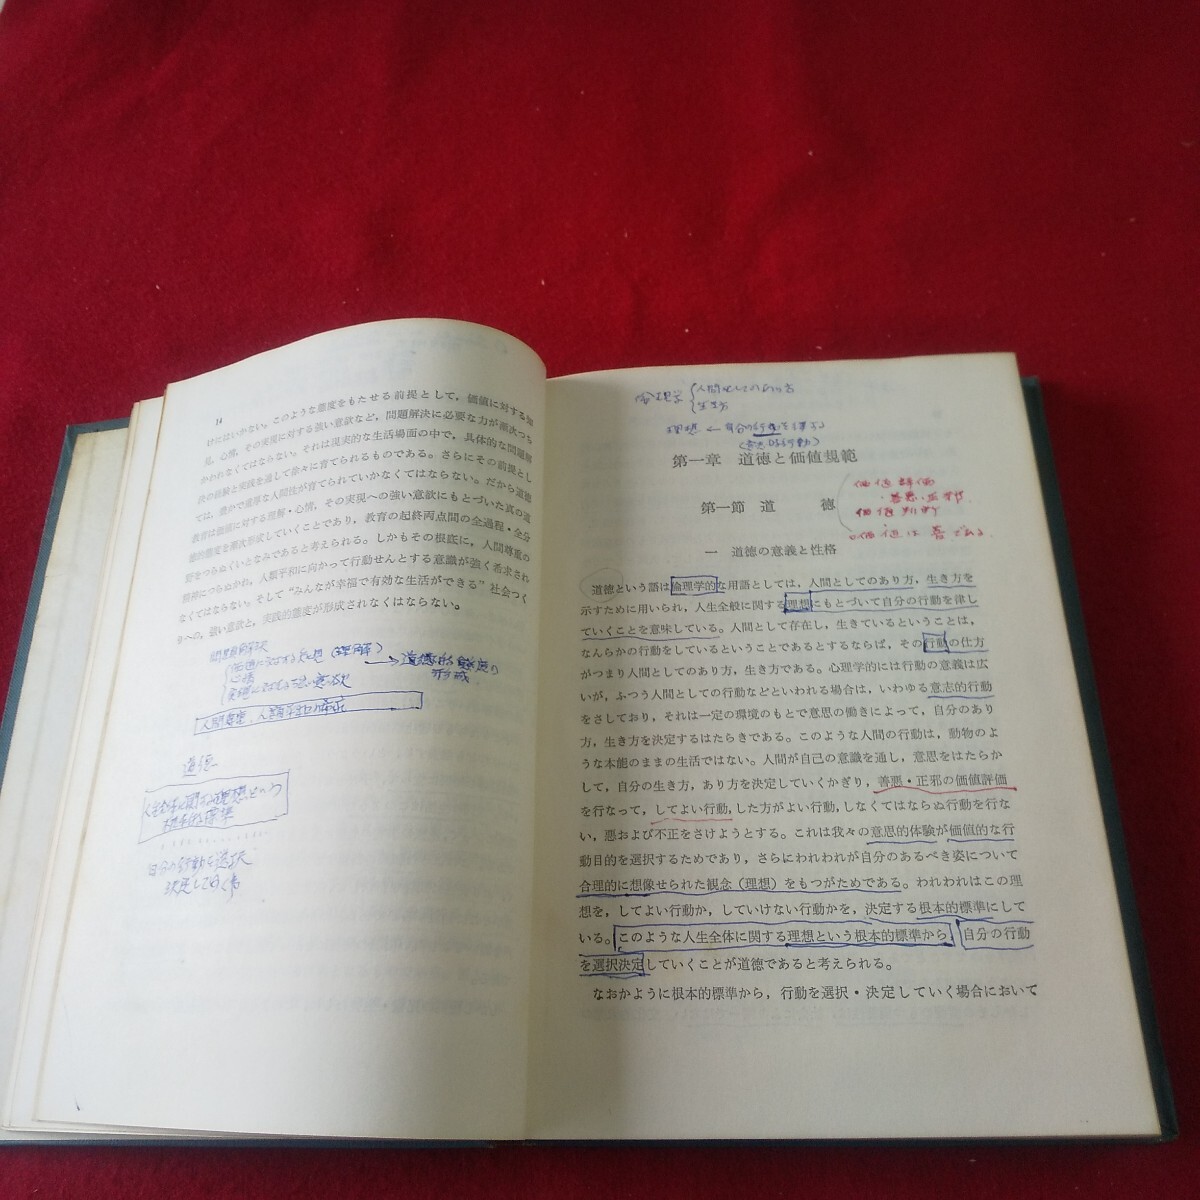 14
けにはいかない。このような態度をもたせる前提として，価値に対する知
見，心情，その実現に対する強い意欲など，問題解決に必要な力が漸次つち
かわれなくてはならない。それは現実的な生活場面の中で，具体的な問題解
決の経験と実践を通して徐々に育てられるものである。さらにその前提とし
ては，豊かで重厚な人間性が育てられていかなくてはならない。だから道徳
教育は価値に対する理解・心情，その実現への強い意欲にもとづいた真の道
徳的態度を漸次形成していくことであり，教育の起終両点間の全過程・全分
野をつらぬくいとなみであると考えられる。しかもその根底に，人間尊重の
精神につらぬかれ，人類平和に向かって行動せんとする意識が強く希求され
なくてはならない。そして“みんなが幸福で有効な生活ができる”社会つく
りへの，強い意欲と，実践的態度が形成されなくはならない。
問題解決
価値に対する知見（理解）→道徳的態度の
心情 形成
人間尊重，人類平和の希求
道徳
人生全体に関する理想という
根本的標準
自分の行動を選択
決定していく事
倫理学 人間としてのあり方
生き方
理想 ← 自分の行動を律する
（意志的行動）
第一章 道徳と価値規範
第一節 道 徳
価値評価
・善悪・正邪
価値判断
価値は善である
一 道徳の意義と性格
道徳という語は倫理学的な用語としては，人間としてのあり方，生き方を
示すために用いられ，人生全般に関する理想にもとづいて自分の行動を律し
ていくことを意味している。人間として存在し，生きているということは，
なんらかの行動をしているということであるとするならば，その行動の仕方
がつまり人間としてのあり方，生き方である。心理学的には行動の意義は広
いが，ふつう人間としての行動などといわれる場合は，いわゆる意志的行動
をさしており，それは一定の環境のもとで意思の働きによって，自分のあり
方，生き方を決定するはたらきである。このような人間の行動は，動物のよ
うな本能のままの生活ではない。人間が自己の意識を通し，意思をはたらか
して，自分の生き方，あり方を決定していくかぎり，善悪・正邪の価値評価
を行なって，してよい行動，した方がよい行動，しなくてはならぬ行動を行な
い，悪および不正をさけようとする。これは我々の意思的体験が価値的な行
動目的を選択するためであり，さらにわれわれが自分のあるべき姿について
合理的に想像せられた観念（理想）をもつがためである。われわれはこの理
想を，してよい行動か，していけない行動かを，決定する根本的標準にして
いる。このような人生全体に関する理想という根本的標準から，自分の行動
を選択決定していくことが道徳であると考えられる。
なおかように根本的標準から，行動を選択・決定していく場合において